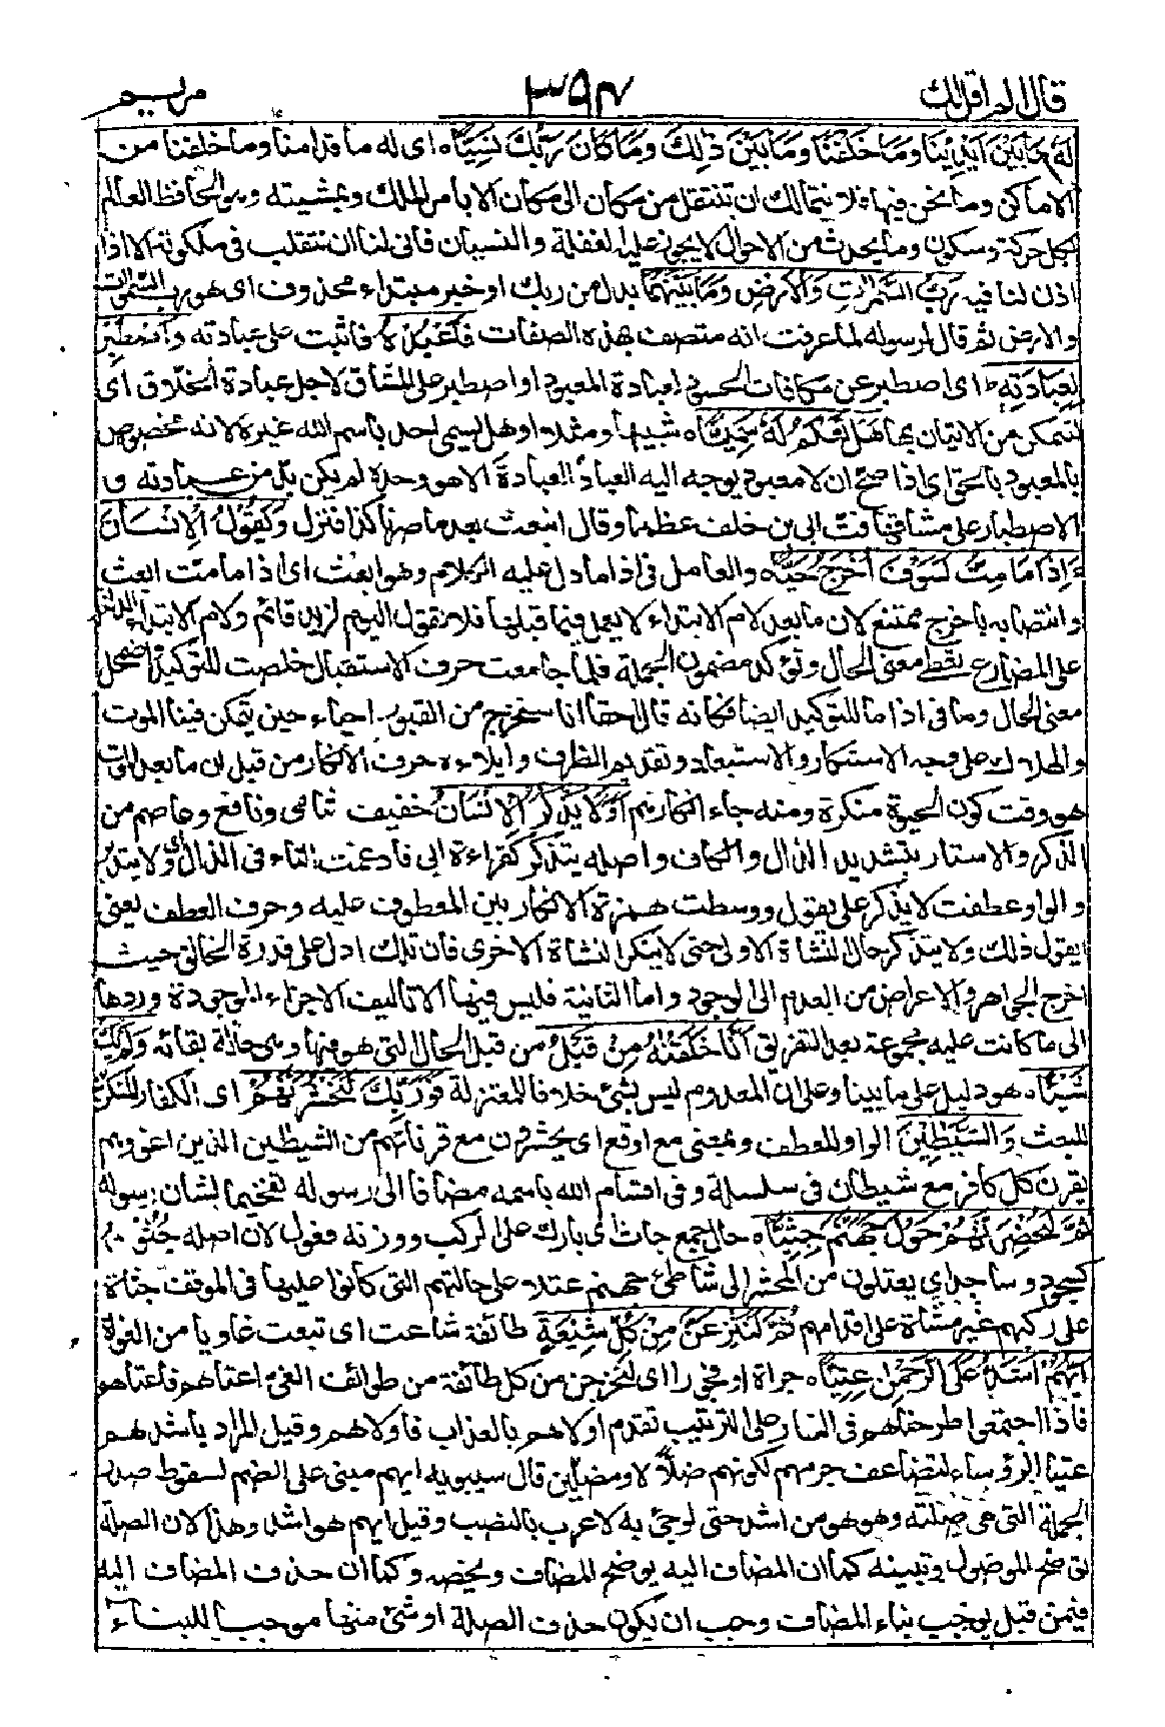 قال الم اقل لك ٣٩٧ مريم
لَهُ مَا بَيْنَ اَيْدِيْنَا وَمَا خَلْفَنَا وَمَا بَيْنَ ذٰلِكَ وَمَا كَانَ رَبُّكَ نَسِيًّا ٥ اى له ما قدامنا وما خلفنا من
الاماكن وما نحن فيها فلا نتمالك ان ننتقل من مكان الى مكان الا بامر الملك وبمشيته وهو الحافظ العالم
بكل حركة وسكون وما يحدث من الاحوال لا يجوز عليه الغفلة والنسيان فانى لنا ان نتقلب فى ملكوته الا اذا
اذن لنا فيه رَبُّ السَّمٰوٰتِ وَالْاَرْضِ وَمَا بَيْنَهُمَا بدل من ربك او خبر مبتداء محذوف اى هو رب السمٰوٰت
والارض ثم قال لرسوله لما عرفت انه متصف بهذه الصفات فَاعْبُدْهُ فاثبت على عبادته وَاصْطَبِرْ
لِعِبَادَتِهٖ ط اى اصطبر عن مكافات الحسنى لعبادة المعبود او اصطبر على المشاق لاجل عبادة الخلاق اى
لتتمكن من الاتيان بها هَلْ تَعْلَمُ لَهُ سَمِيًّا ٥ شبيها ومثلا او هل يسمى احد باسم الله غيره لانه مخصوص
بالمعبود بالحق اى اذا صح ان لا معبود يوجه اليه العبادُ العبادةَ الا هو وحده لم يكن بد من عبادته و
الاصطبار على مشاقها فتّ ابى بن خلف عظما وقال انبعث بعد ما صرنا كذا فنزل وَيَقُوْلُ الْاِنْسَانُ
ءَاِذَا مَا مِتُّ لَسَوْفَ اُخْرَجُ حَيًّا ٥ والعامل فى اذا ما دل عليه الكلام وهو ابعث اى اذا ما مت ابعث
وانتصابه باخرج ممتنع لان ما بعد لام الابتداء لا يعمل فيما قبلها فلا نقول اليوم لزيد قائم ولام الابتداء الداخلة
على المضارع يعطى معنى الحال وتؤكد مضمون الجملة فلما جامعت حرف الاستقبال خلصت للتوكيد واضمحل
معنى الحال وما فى اذا ما للتوكيد ايضا فكانه قال حقا انا سنخرج من القبور احياء حين يتمكن فينا الموت
والهلاك على وجه الاستنكار والاستبعاد وتقديم الظرف وايلاءه حرف الانكار من قبل ان ما بعد الموت
هو وقت كون الحيوة منكرة ومنه جاء انكارهم اَوَلَا يَذْكُرُ الْاِنْسَانُ خفيف شامى ونافع وعاصم من
الذكر والاستار بتشديد الذال والكاف واصله يتذكر كقراءة ابى فادغمت التاء فى الذال اى اولا يتذكر
والواو عطفت لا يذكر على يقول ووسطت همزة الانكار بين المعطوف عليه وحرف العطف يعنى
ايقول ذلك ولا يتذكر حال النشاة الاولى حتى لا ينكر النشاة الاخرى فان تلك ادل على قدرة الخالق حيث
اخرج الجواهر والاعراض من العدم الى الوجود واما الثانية فليس فيها الا تاليف الاجزاء الموجودة وردها
الى ما كانت عليه مجموعة بعد التفريق اَنَّا خَلَقْنٰهُ مِنْ قَبْلُ من قبل الحال التى هو فيها وهى حالة بقائه وَلَمْ يَكُ
شَيْئًا ٥ هو دليل على ما بينا وعلى ان المعدوم ليس بشئ خلافا للمعتزلة فَوَرَبِّكَ لَنَحْشُرَنَّهُمْ اى الكفار المنكرين
للبعث وَالشَّيٰطِيْنَ الواو للعطف وبمعنى مع اوقع اى يحشرون مع قرنائهم من الشيطين الذين اغووهم
يقرن كل كافر مع شيطان فى سلسلة وفى اقسام الله باسمه مضافا الى رسوله تفخيما لشان رسوله
ثُمَّ لَنُحْضِرَنَّهُمْ حَوْلَ جَهَنَّمَ جِثِيًّا ٥ حال جمع جاث اى بارك على الركب ووزنه فعول لان اصله جُثُوْوٌ
كسجود وساجد اى يعتلون من المحشر الى شاطئ جهنم عتلا على حالتهم التى كانوا عليها فى الموقف جثاة
على ركبهم غير مشاة على اقدامهم ثُمَّ لَنَنْزِعَنَّ مِنْ كُلِّ شِيْعَةٍ طائفة شاعت اى تبعت غاويا من الغواة
اَيُّهُمْ اَشَدُّ عَلَى الرَّحْمٰنِ عِتِيًّا ٥ جراة او فجورا اى لنخرجن من كل طائفة من طوائف الغى اعتاهم فاعتاهم
فاذا اجتمعوا طرحناهم فى النار على الترتيب تقدم اولاهم بالعذاب فاولاهم وقيل المراد باشدهم
عتيا الرؤساء لتضاعف جرمهم لكونهم ضلالا ومضلين قال سيبويه ايهم مبنى على الضم لسقوط صدر
الجملة التى هى صلته وهو هو من اشد حتى لو جئ به لاعرب بالنصب وقيل ايهم هو اشد وهذا لان الصلة
توضح الموصول وتبينه كما ان المضاف اليه يوضح المضاف ويخصصه وكما ان حذف المضاف اليه
فيمن قبل يوجب بناء المضاف وجب ان يكون حذف الصلة او شئ منها موجبا للبناء